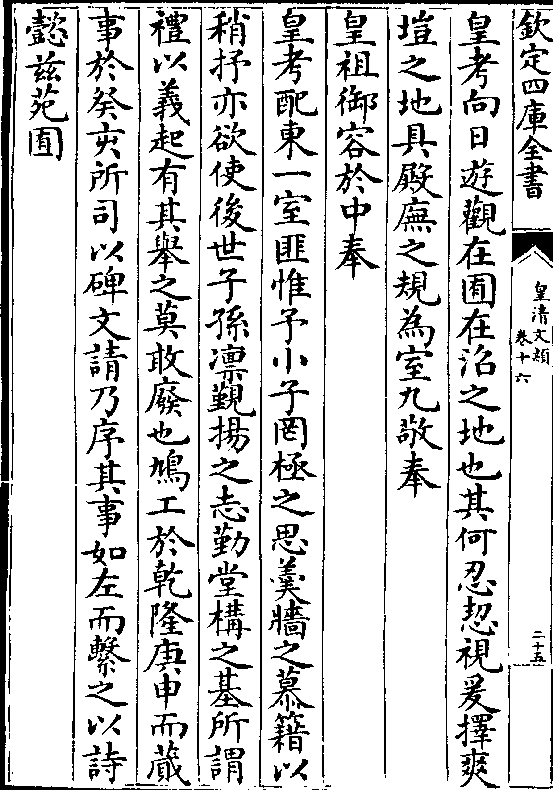 欽定四庫全書
皇清文穎
卷十六
二十五
皇考向日遊觀在囿在沼之地也其何忍恝視爰擇爽
塏之地具殿廡之規為室九敬奉
皇祖御容於中奉
皇考配東一室匪惟予小子罔極之思羮牆之慕籍以
稍抒亦欲使後世子孫凛覲揚之志勤堂構之基所謂
禮以義起有其舉之莫敢廢也鳩工於乾隆庚申而蕆
事於癸亥所司以碑文請乃序其事如左而繫之以詩
懿兹苑囿